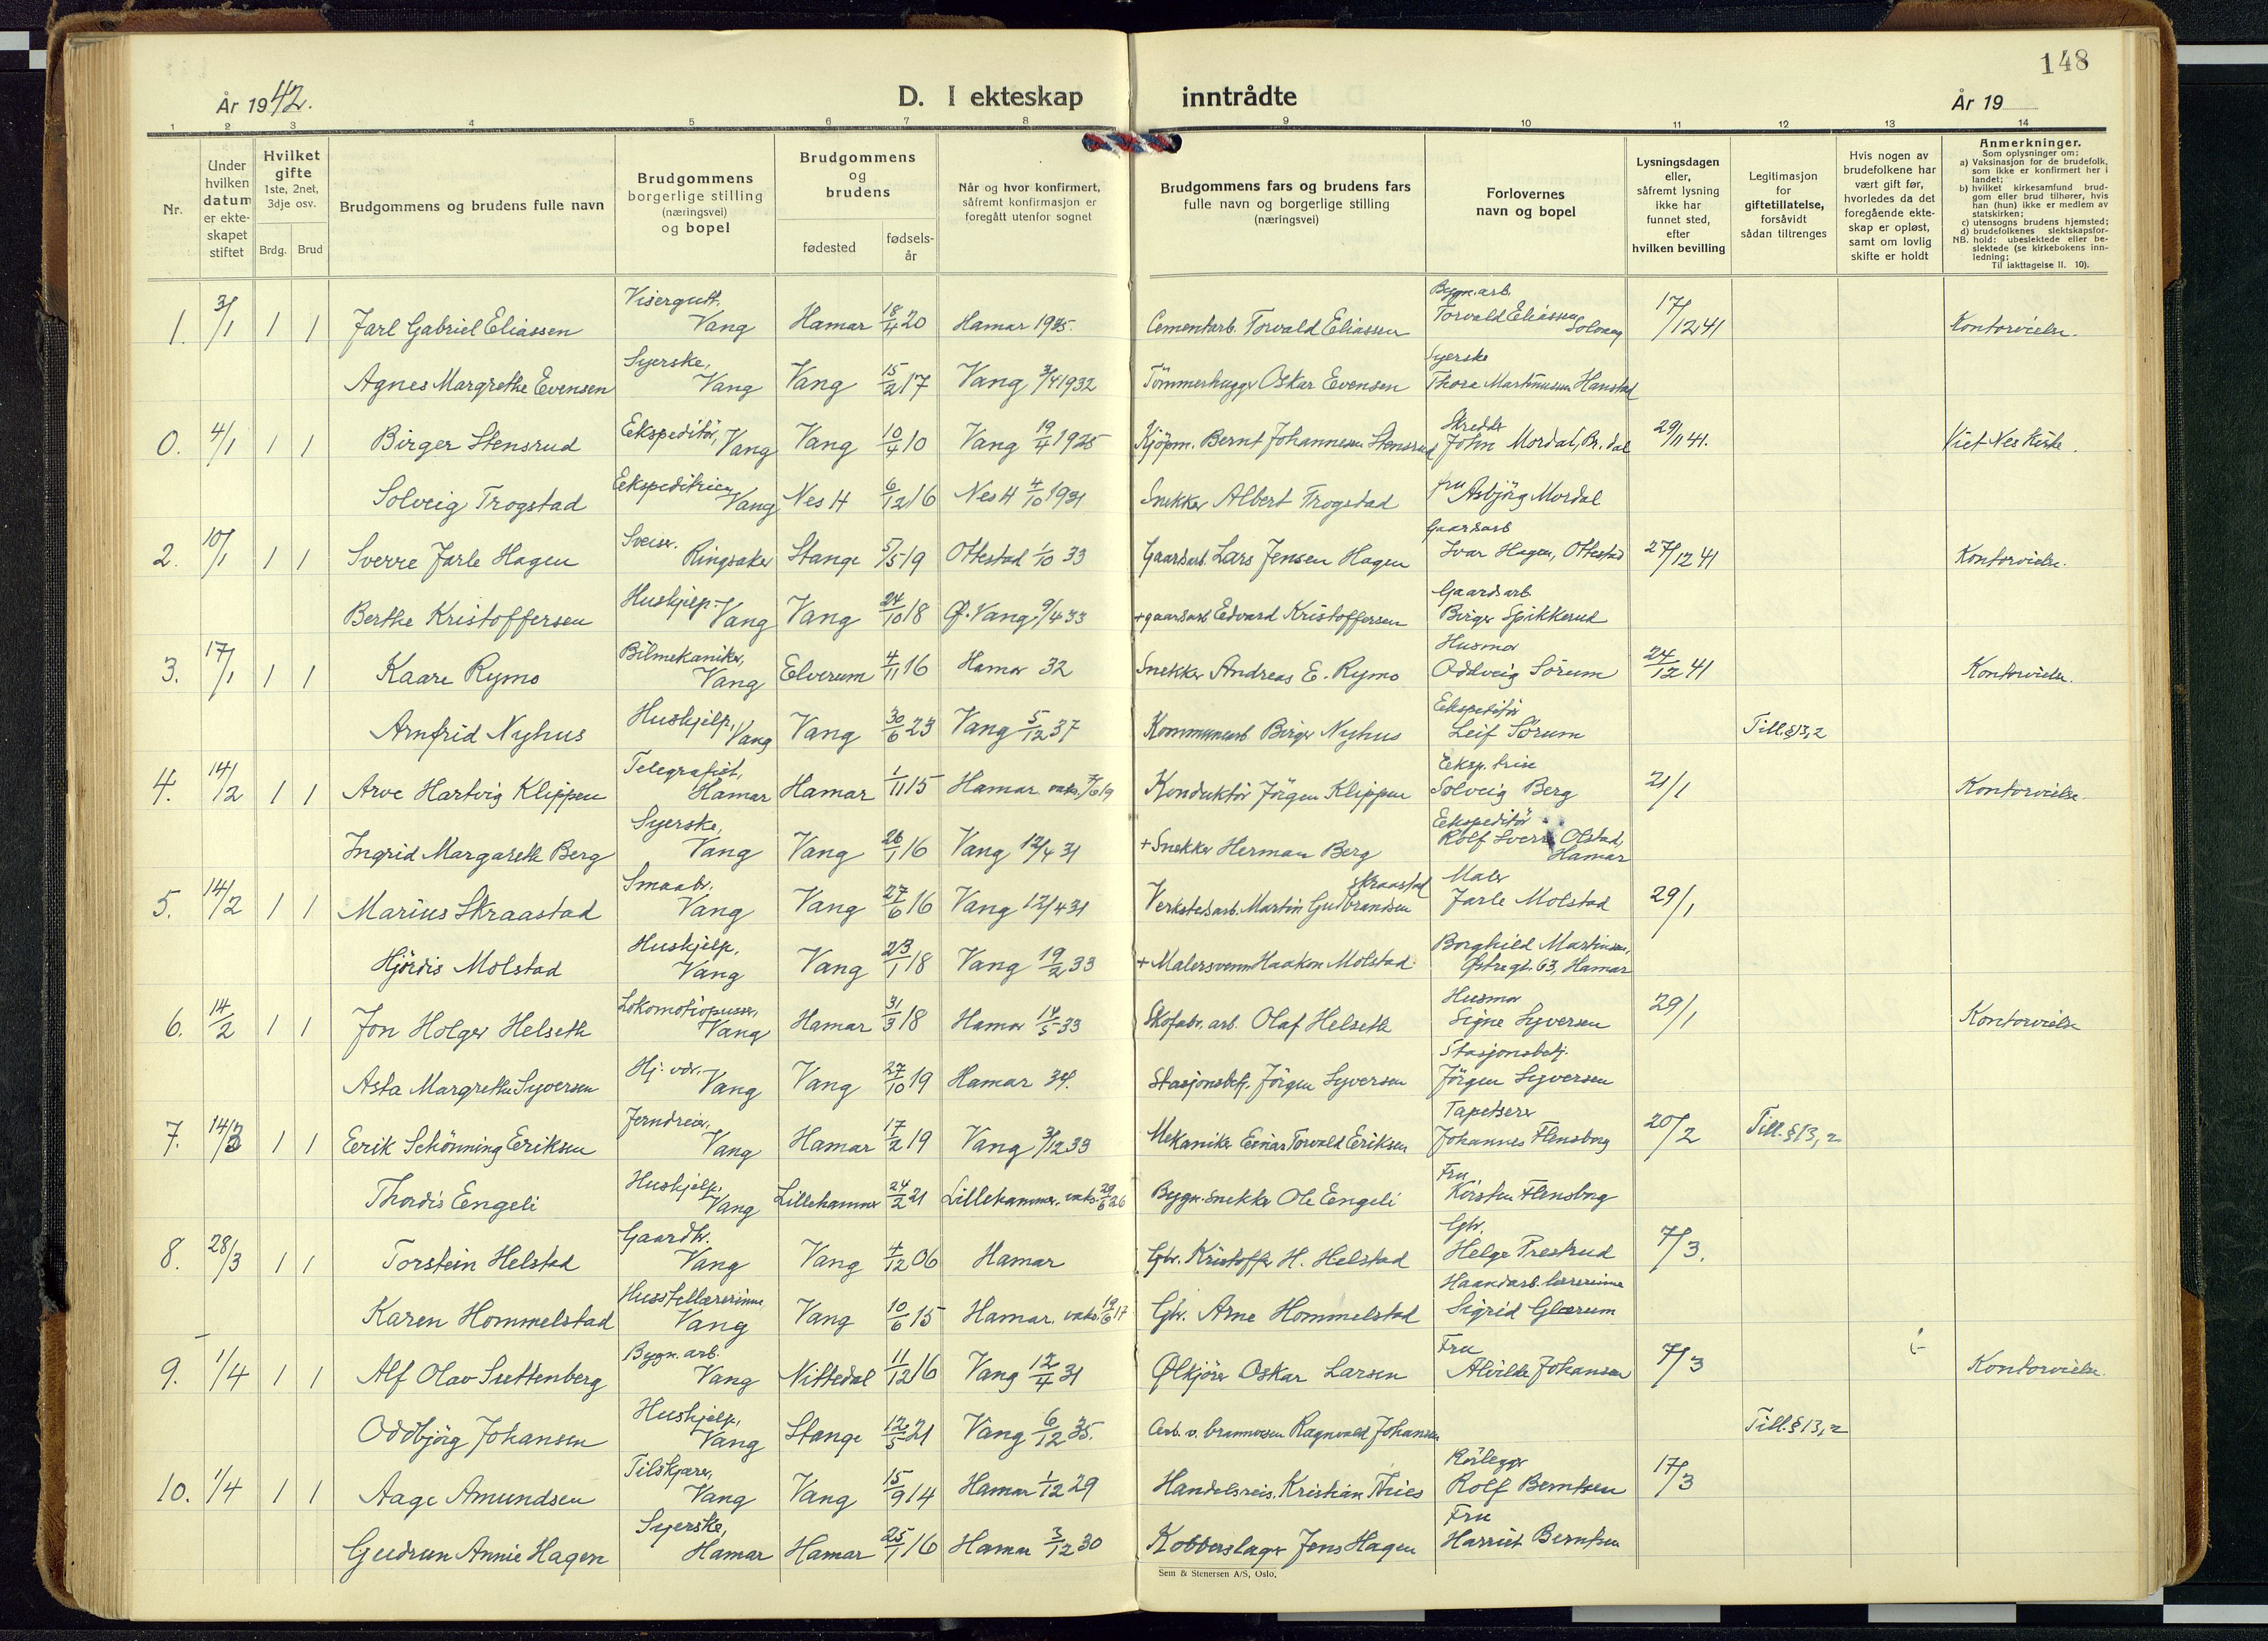 148
År 1942.
D. I ekteskap inntrådte
År 19
1 2 3 4 5 6 7 8 9 10 11 12 13 14
Nr.
Under hvilken datum er ekteskapet stiftet
Hvilket gifte 1ste, 2net, 3dje osv.
Brdg. Brud
Brudgommens og brudens fulle navn
Brudgommens borgerlige stilling (næringsvei) og bopel
Brudgommens og brudens
fødested
fødselsår
Når og hvor konfirmert, såfremt konfirmasjon er foregått utenfor sognet
Brudgommens fars og brudens fars fulle navn og borgerlige stilling (næringsvei)
Forlovernes navn og bopel
Lysningsdagen eller, såfremt lysning ikke har funnet sted, efter hvilken bevilling
Legitimasjon for giftetillatelse, forsåvidt sådan tiltrenges
Hvis nogen av brudefolkene har vært gift før, hvorledes da det foregående ekteskap er opløst, samt om lovlig skifte er holdt
Anmerkninger.
Som oplysninger om:
a) Vaksinasjon for de brudefolk, som ikke er konfirmert her i landet;
b) hvilket kirkesamfund brudgom eller brud tilhører, hvis han (hun) ikke er medlem av statskirken;
c) utensogns brudens hjemsted;
d) brudefolkenes slektskapsforhold: ubeslektede eller beslektede (se kirkebokens innledning;
NB.
Til iakttagelse II. 10).
1. 3/1 1 1 Jarl Gabriel Eliassen Visergutt. Vang Hamar 18/4 20 Hamar 1935. Cementarb. Torvald Eliassen Bygn.arb. Torvald Eliassen Solvang 17/12 41 Kontorvielse.
Agnes Margrethe Evensen Syerske, Vang Vang 15/2 17 Vang 3/4 1932 Tömmerhugger Oskar Evensen Syerske Thora Martinusen Hanstad
0. 4/1 1 1 Birger Stensrud Ekspeditör, Vang Vang 10/4 10 Vang 19/4 1925 Kjöpm. Bernt Johannessen Stensrud Skredder John Mordal, Br.dal 29/11 41. Viet Nes Kirke.
Solveig Trogstad Ekspeditrice Vang Nes H 6/12 16 Nes H 4/10 1931 Snekker Albert Trogstad fru Asbjörg Mordal
2. 10/1 1 1 Sverre Jarle Hagen Sveiser. Ringsaker Stange 5/5 19 Ottestad 1/10 33 Gaardsarb. Lars Jensen Hagen Gaardsarb Ivar Hagen, Ottestad 27/12 41 Kontorvielse.
Berthe Kristoffersen Hushjelp. Vang Vang 24/10 18 Ø. Vang 9/4 33 + gaardsarb Edvard Kristoffersen Gaardsarb Birger Spikkerud
3. 17/1 1 1 Kaare Rymo Bilmekaniker, Vang Elverum 4/11 16 Hamar 32 Snekker Andreas E. Rymo Husmor Oddveig Sörum 24/12 41 Kontorvielse.
Arnfrid Nyhus Hushjelp, Vang Vang 30/6 23 Vang 5/12 37 Kommunearb Birger Nyhus Ekspeditör Leif Sörum Till. § 13,2
4. 14/2 1 1 Arve Hartvig Klippen Telegrafist, Hamar Hamar 1/11 15 Hamar. vaks. 7/6 19 Konduktör Jörgen Klippen Eksp. trise Solveig Berg 21/1 Kontorvielse.
Ingrid Margareth Berg Syerske, Vang Vang 26/1 16 Vang 12/4 31 + Snekker Herman Berg Ekspeditör Rolf Sverre Olstad, Hamar
5. 14/2 1 1 Marius Skraastad Smaabr. Vang Vang 27/6 16 Vang 12/4 31 Verkstedsarb. Martin Gudbrandsen Skraastad Maler Jarle Molstad 29/1
Hjördis Molstad Hushjelp, Vang Vang 23/1 18 Vang 19/2 33 + Malersvenn Haakon Molstad Borghild Martinsen, Østregt. 63, Hamar
6. 14/2 1 1 Jon Holger Helseth Lokomotivpusser, Vang Hamar 31/3 18 Hamar 14/5 33 Skofabr. arb. Olaf Helseth Husmor Signe Syversen 29/1 Kontorvielse
Asta Margrethe Syversen Hj. vdr. Vang Vang 27/10 19 Hamar 34. Stasjonsbetj. Jörgen Syversen Stasjonsbetj. Jörgen Syversen
7. 14/3 1 1 Eerik Schönning Eriksen Jerndreier, Vang Hamar 17/2 19 Vang 3/12 33 Mekaniker Einar Torvald Eriksen Tapetserer Johannes Flensborg 20/2 Till. § 13,2
Thordis Engeli Hushjelp. Vang Lillehammer 24/2 21 Lillehammer. vaks. 29/6 26 Bygn. snekker Ole Engeli Fru Kirsten Flensborg
8. 28/3 1 1 Torstein Helstad Gaardbr. Vang Vang 4/12 06 Hamar Gbr. Kristoffer H. Helstad Gbr. Helge Prestrud 7/3.
Karen Hommelstad Husstellærerinne Vang Vang 10/6 15 Hamar. vaks. 19/6 17 Gbr. Arne Hommelstad Haandarb. lærerinne Sigrid Glærum
9. 1/4 1 1 Alf Olav Suttenberg Bygn. arb. Vang Nittedal 11/12 16 Vang 12/4 31 Ølkjörer Oskar Larsen Fru Alvilde Johansen 7/3 Kontorvielse.
Oddbjörg Johansen Hushjelp, Vang Stange 12/5 21 Vang 6/12 35. Arb. v. brennevsen Ragnvald Johansen Till. § 13,2
10. 1/4 1 1 Aage Amundsen Tilskjærer, Vang Vang 15/9 14 Hamar 1/12 29 Handelsreis. Kristian Thies Rörlegger Rolf Berntsen 17/3
Gudrun Annie Hagen Syerske, Hamar Hamar 25/1 16 Hamar 3/12 30 Kobberslager Jens Hagen Fru Harriet Berntsen
Sem & Stenersen A/S, Oslo.